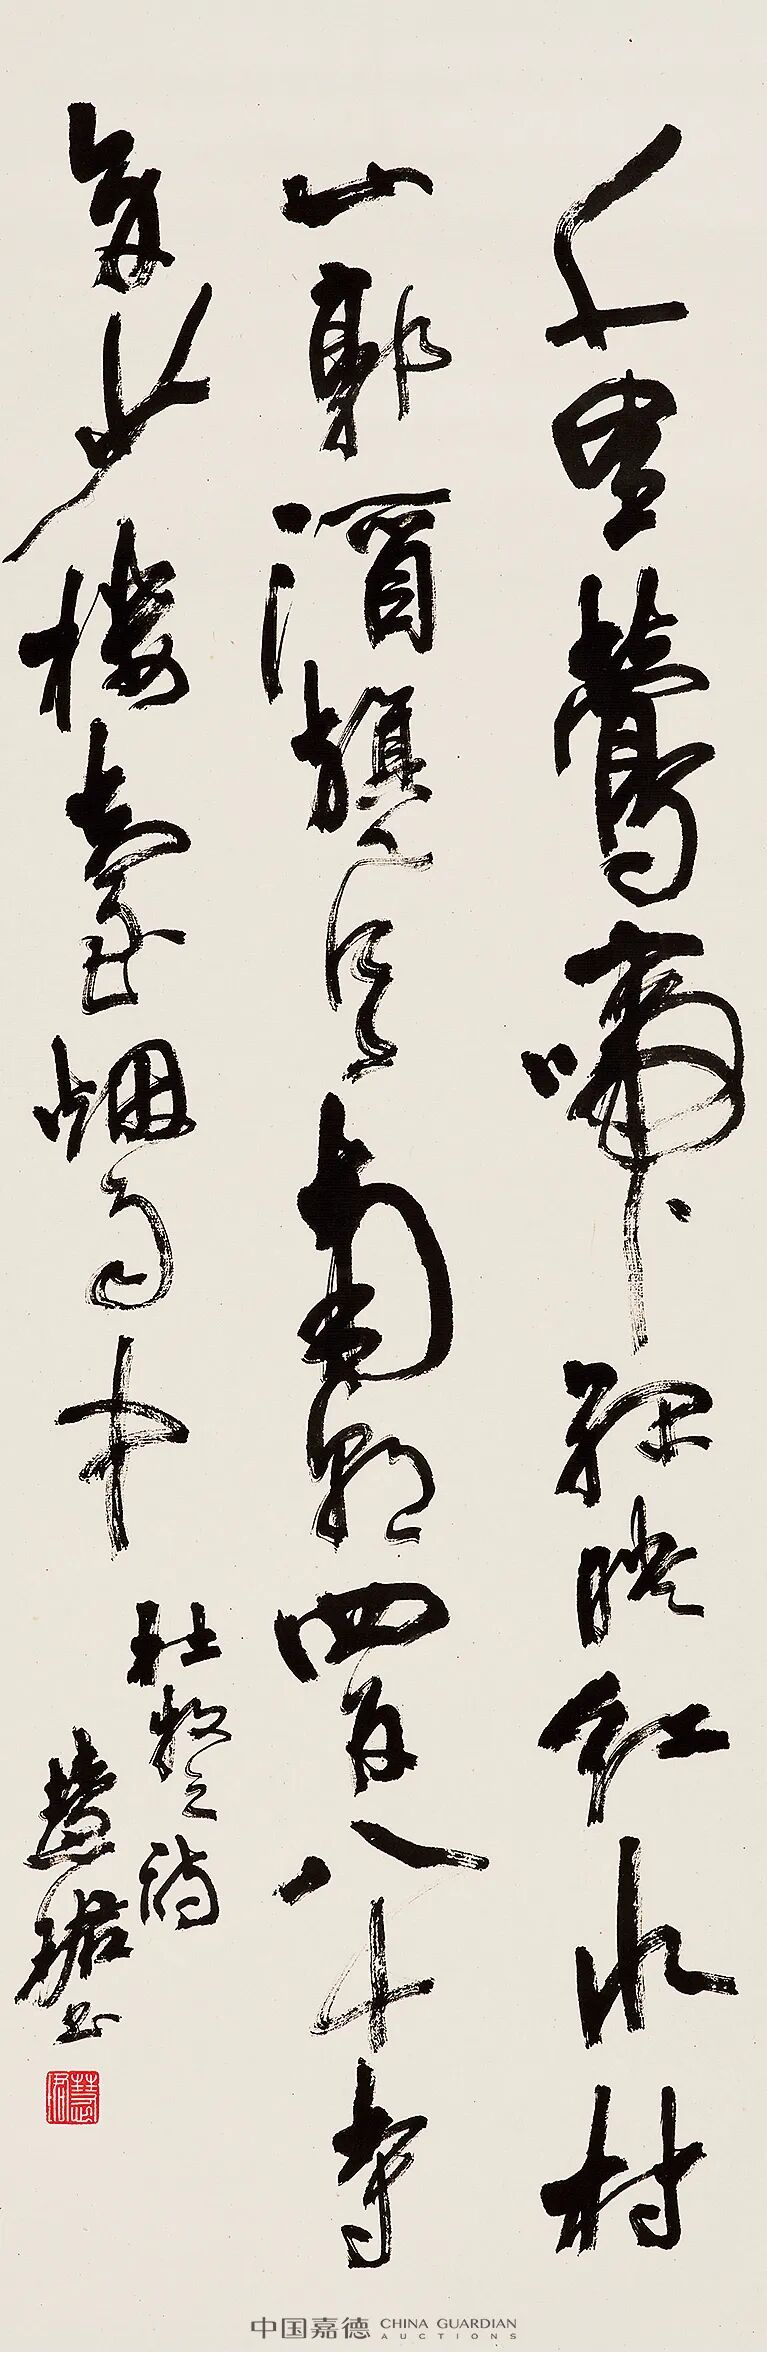 千里鶯啼綠映紅水村
山郭酒旗風南朝四百八十寺
多少樓臺烟雨中
杜牧之詩
慧珺書
中国嘉德 CHINA GUARDIAN
AUCTIONS